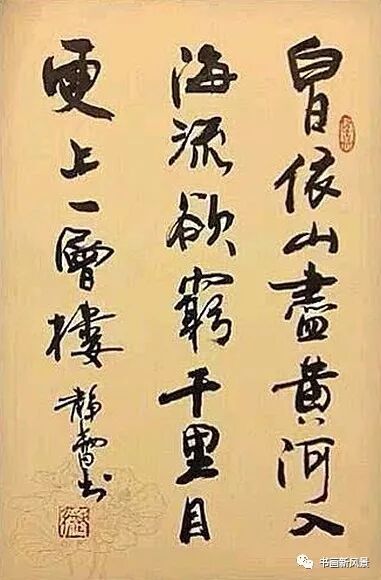 白日依山盡黄河入
海流欲窮千里目
更上一層樓
靜雪书
书画新风景